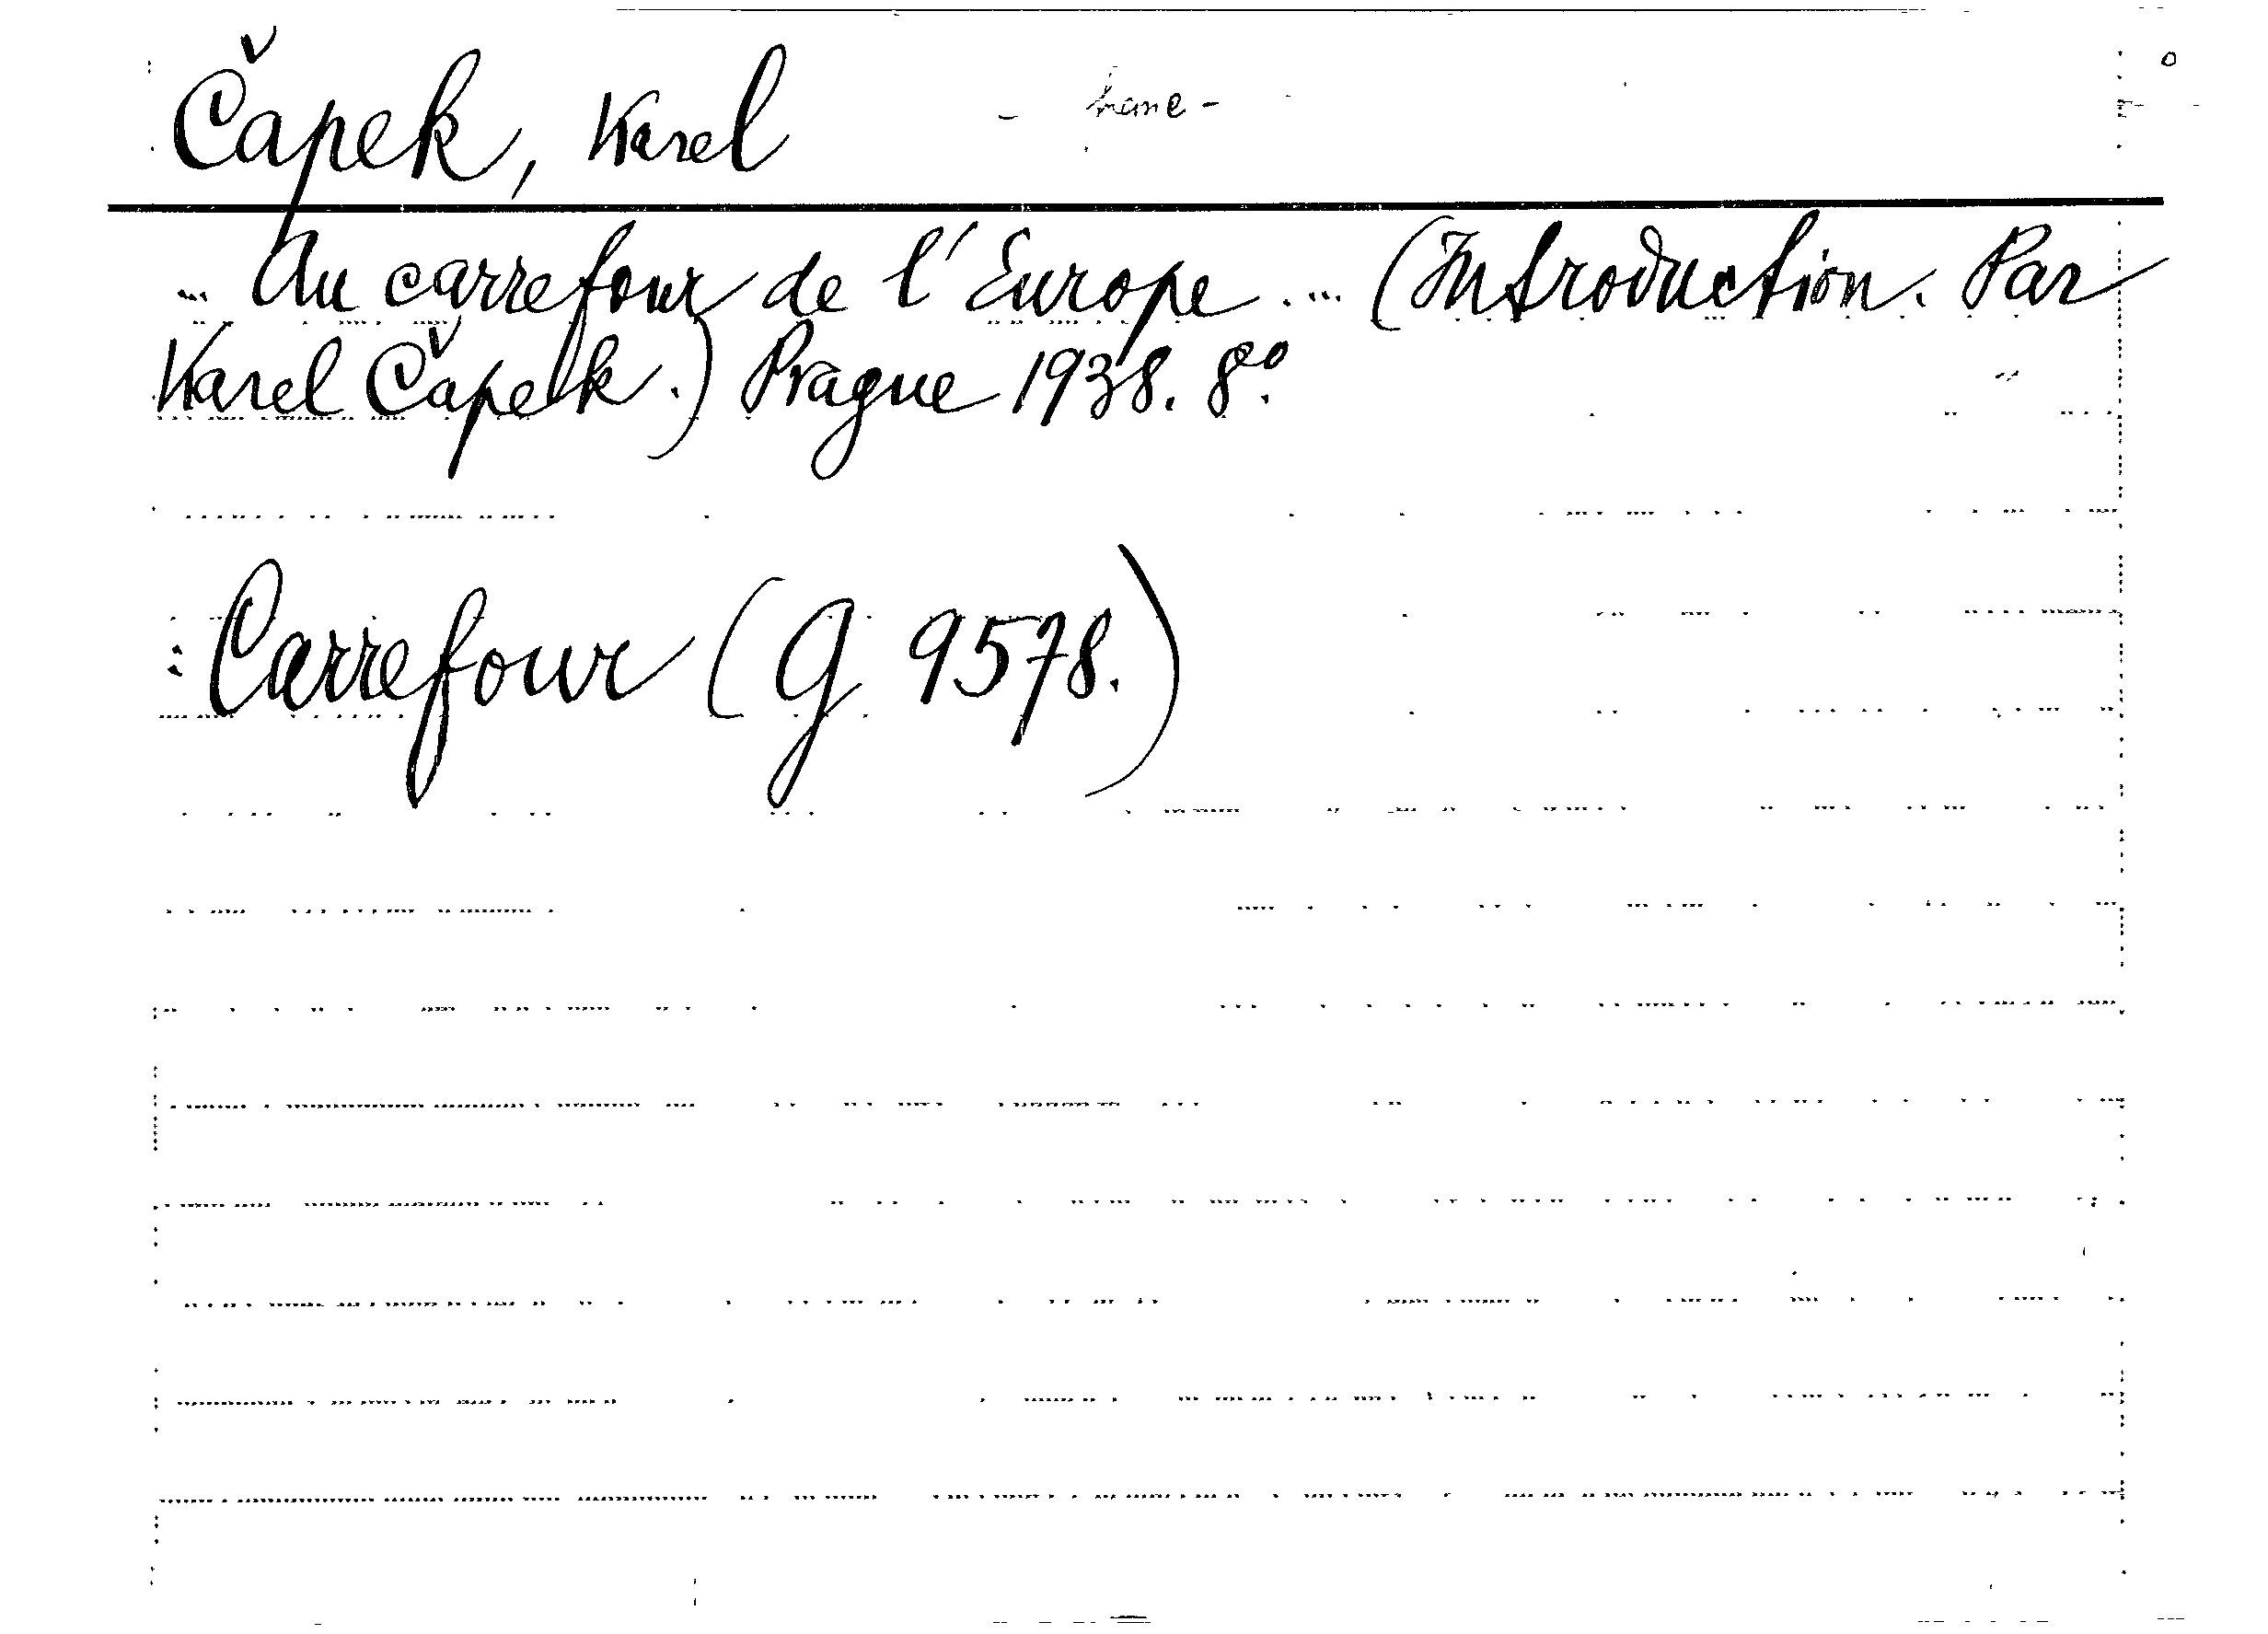 Čapek, Karel
... Au carrefour de l'Europe .... (Introduction. Par
Karel Čapek.) Prague 1938. 8º.
: Carrefour (G 9578.)